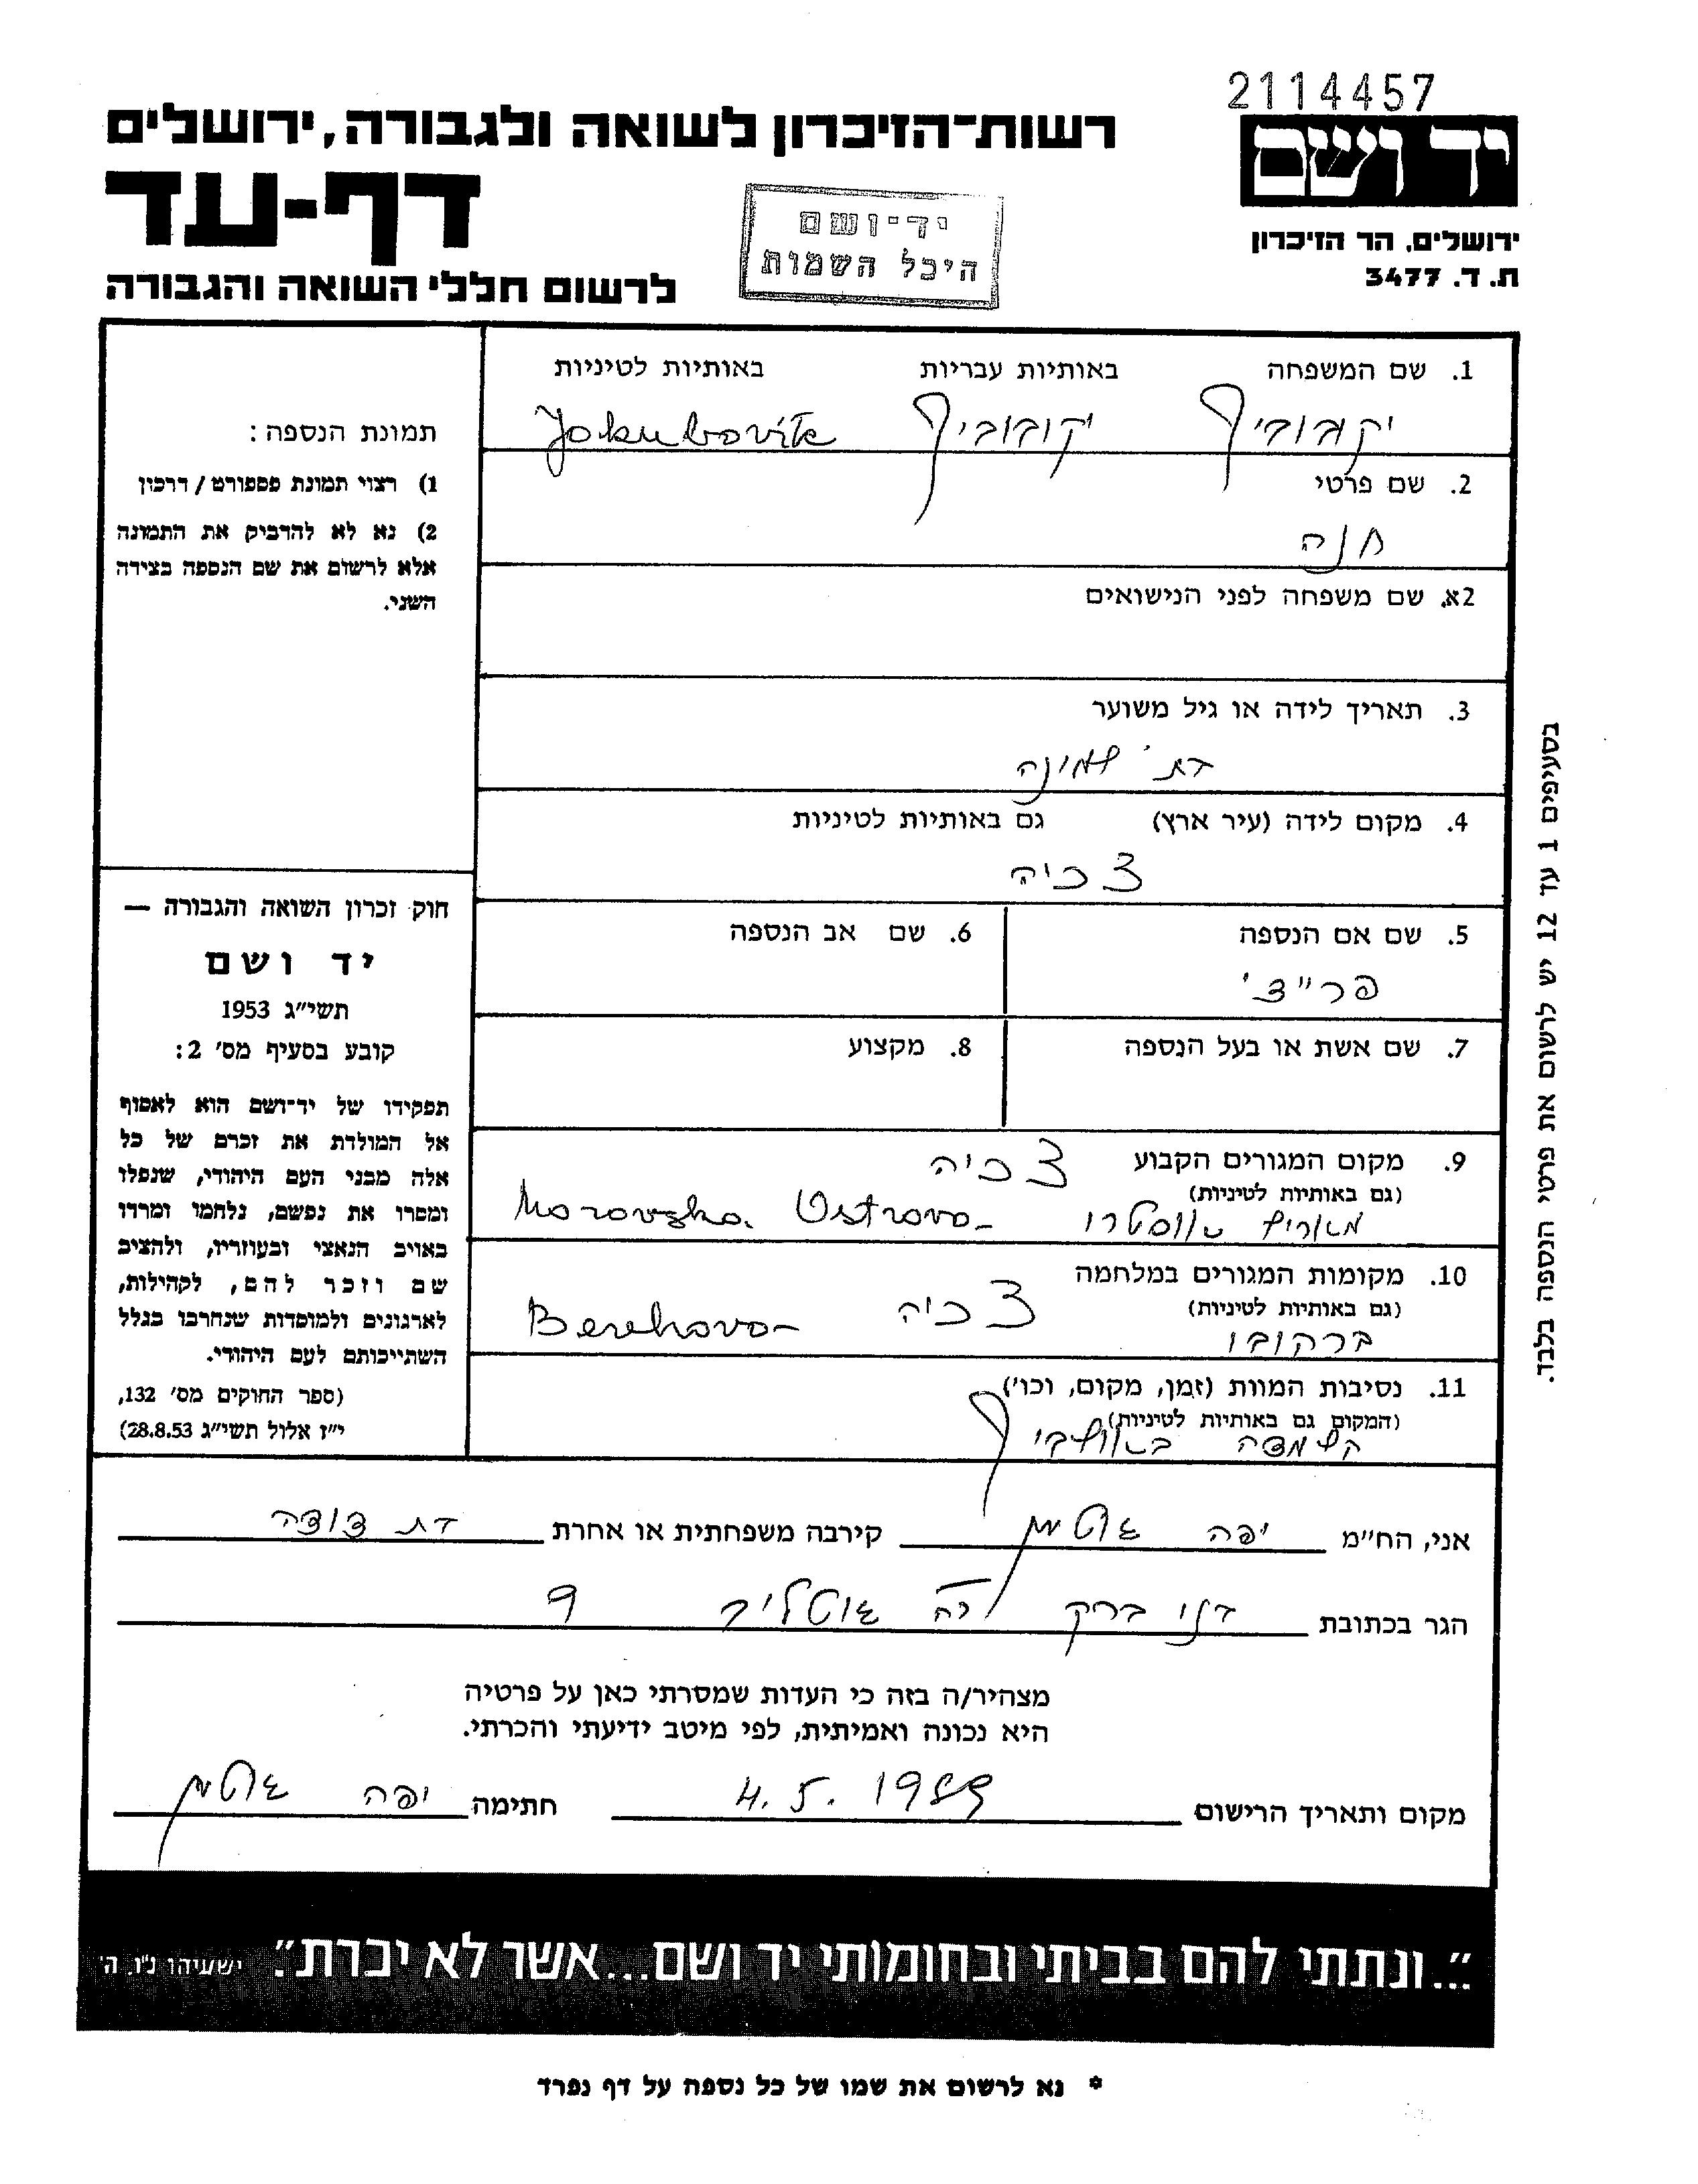 2114457
יד ושם
ירושלים, הר הזיכרון
ת. ד. 3477
רשות־הזיכרון לשואה ולגבורה, ירושלים
דף-עד
לרשום חללי השואה והגבורה
יד-ושם
היכל השמות
1. שם המשפחה באותיות עבריות באותיות לטיניות
יקובוביץ Jokubovits
2. שם פרטי
חנה
2א. שם משפחה לפני הנישואים
3. תאריך לידה או גיל משוער
בת שמונה
4. מקום לידה (עיר ארץ) גם באותיות לטיניות
צ'כיה
5. שם אם הנספה
פריידי
6. שם אב הנספה
7. שם אשת או בעל הנספה
8. מקצוע
9. מקום המגורים הקבוע צ'כיה
(גם באותיות לטיניות)
Ostrava
10. מקומות המגורים במלחמה
(גם באותיות לטיניות) צ'כיה
ברהובו Berehovo
11. נסיבות המוות (זמן, מקום, וכו')
(המקום גם באותיות לטיניות)
באושביץ
תמונת הנספה:
1) רצוי תמונת פספורט / דרכון
2) נא לא להדביק את התמונה
אלא לרשום את שם הנספה בצידה
השני.
חוק זכרון השואה והגבורה —
יד ושם
תשי״ג 1953
קובע בסעיף מס' 2:
תפקידו של יד־ושם הוא לאסוף
אל המולדת את זכרם של כל
אלה מבני העם היהודי, שנפלו
ומסרו את נפשם, נלחמו ומרדו
באויב הנאצי ובעוזריו, ולהציב
שם וזכר להם, לקהילות,
לארגונים ולמוסדות שנחרבו בגלל
השתייכותם לעם היהודי.
(ספר החוקים מס' 132,
י״ז אלול תשי״ג 28.8.53)
בסעיפים 1 עד 12 יש לרשום את פרטי הנספה בלבד.
אני, הח״מ יפה גוטמן קירבה משפחתית או אחרת בת דודה
הגר בכתובת בני ברק רח גוטליב 9
מצהיר/ה בזה כי העדות שמסרתי כאן על פרטיה
היא נכונה ואמיתית, לפי מיטב ידיעתי והכרתי.
מקום ותאריך הרישום 4.5.1989 חתימה יפה גוטמן
״...ונתתי להם בביתי ובחומותי יד ושם...אשר לא יכרת״. ישעיהו נ״ו. ה'
* נא לרשום את שמו של כל נספה על דף נפרד